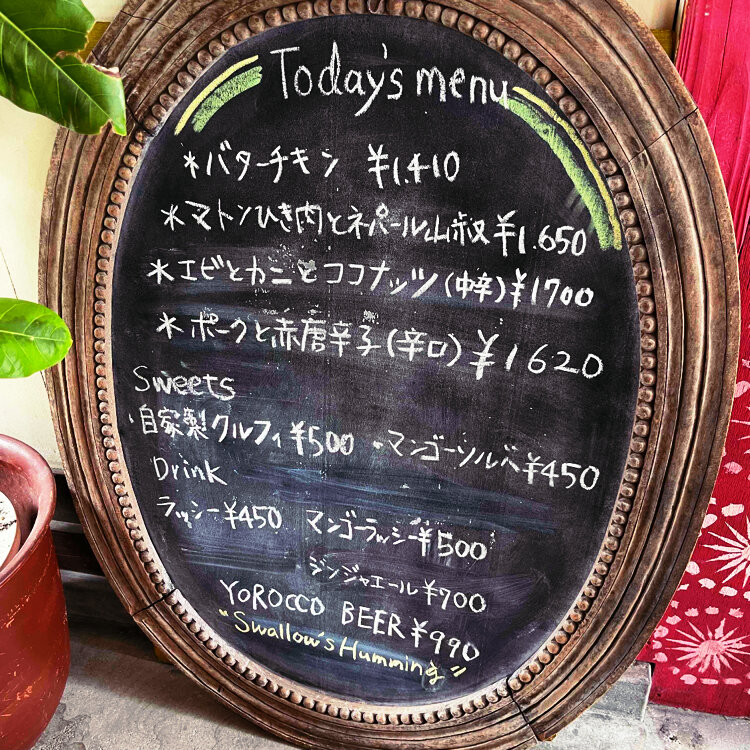 Today's menu
*バターチキン ¥1.410
*マトンひき肉とネパール山椒¥1.650
*エビとカニとココナッツ(中辛)¥1700
*ポークと赤唐辛子(辛口)¥1620
Sweets
・自家製クルフィ¥500 ・マンゴーソルベ¥450
Drink
ラッシー¥450 マンゴーラッシー¥500
ジンジャエール¥700
YOROCCO BEER¥990
"Swallow's Humming"